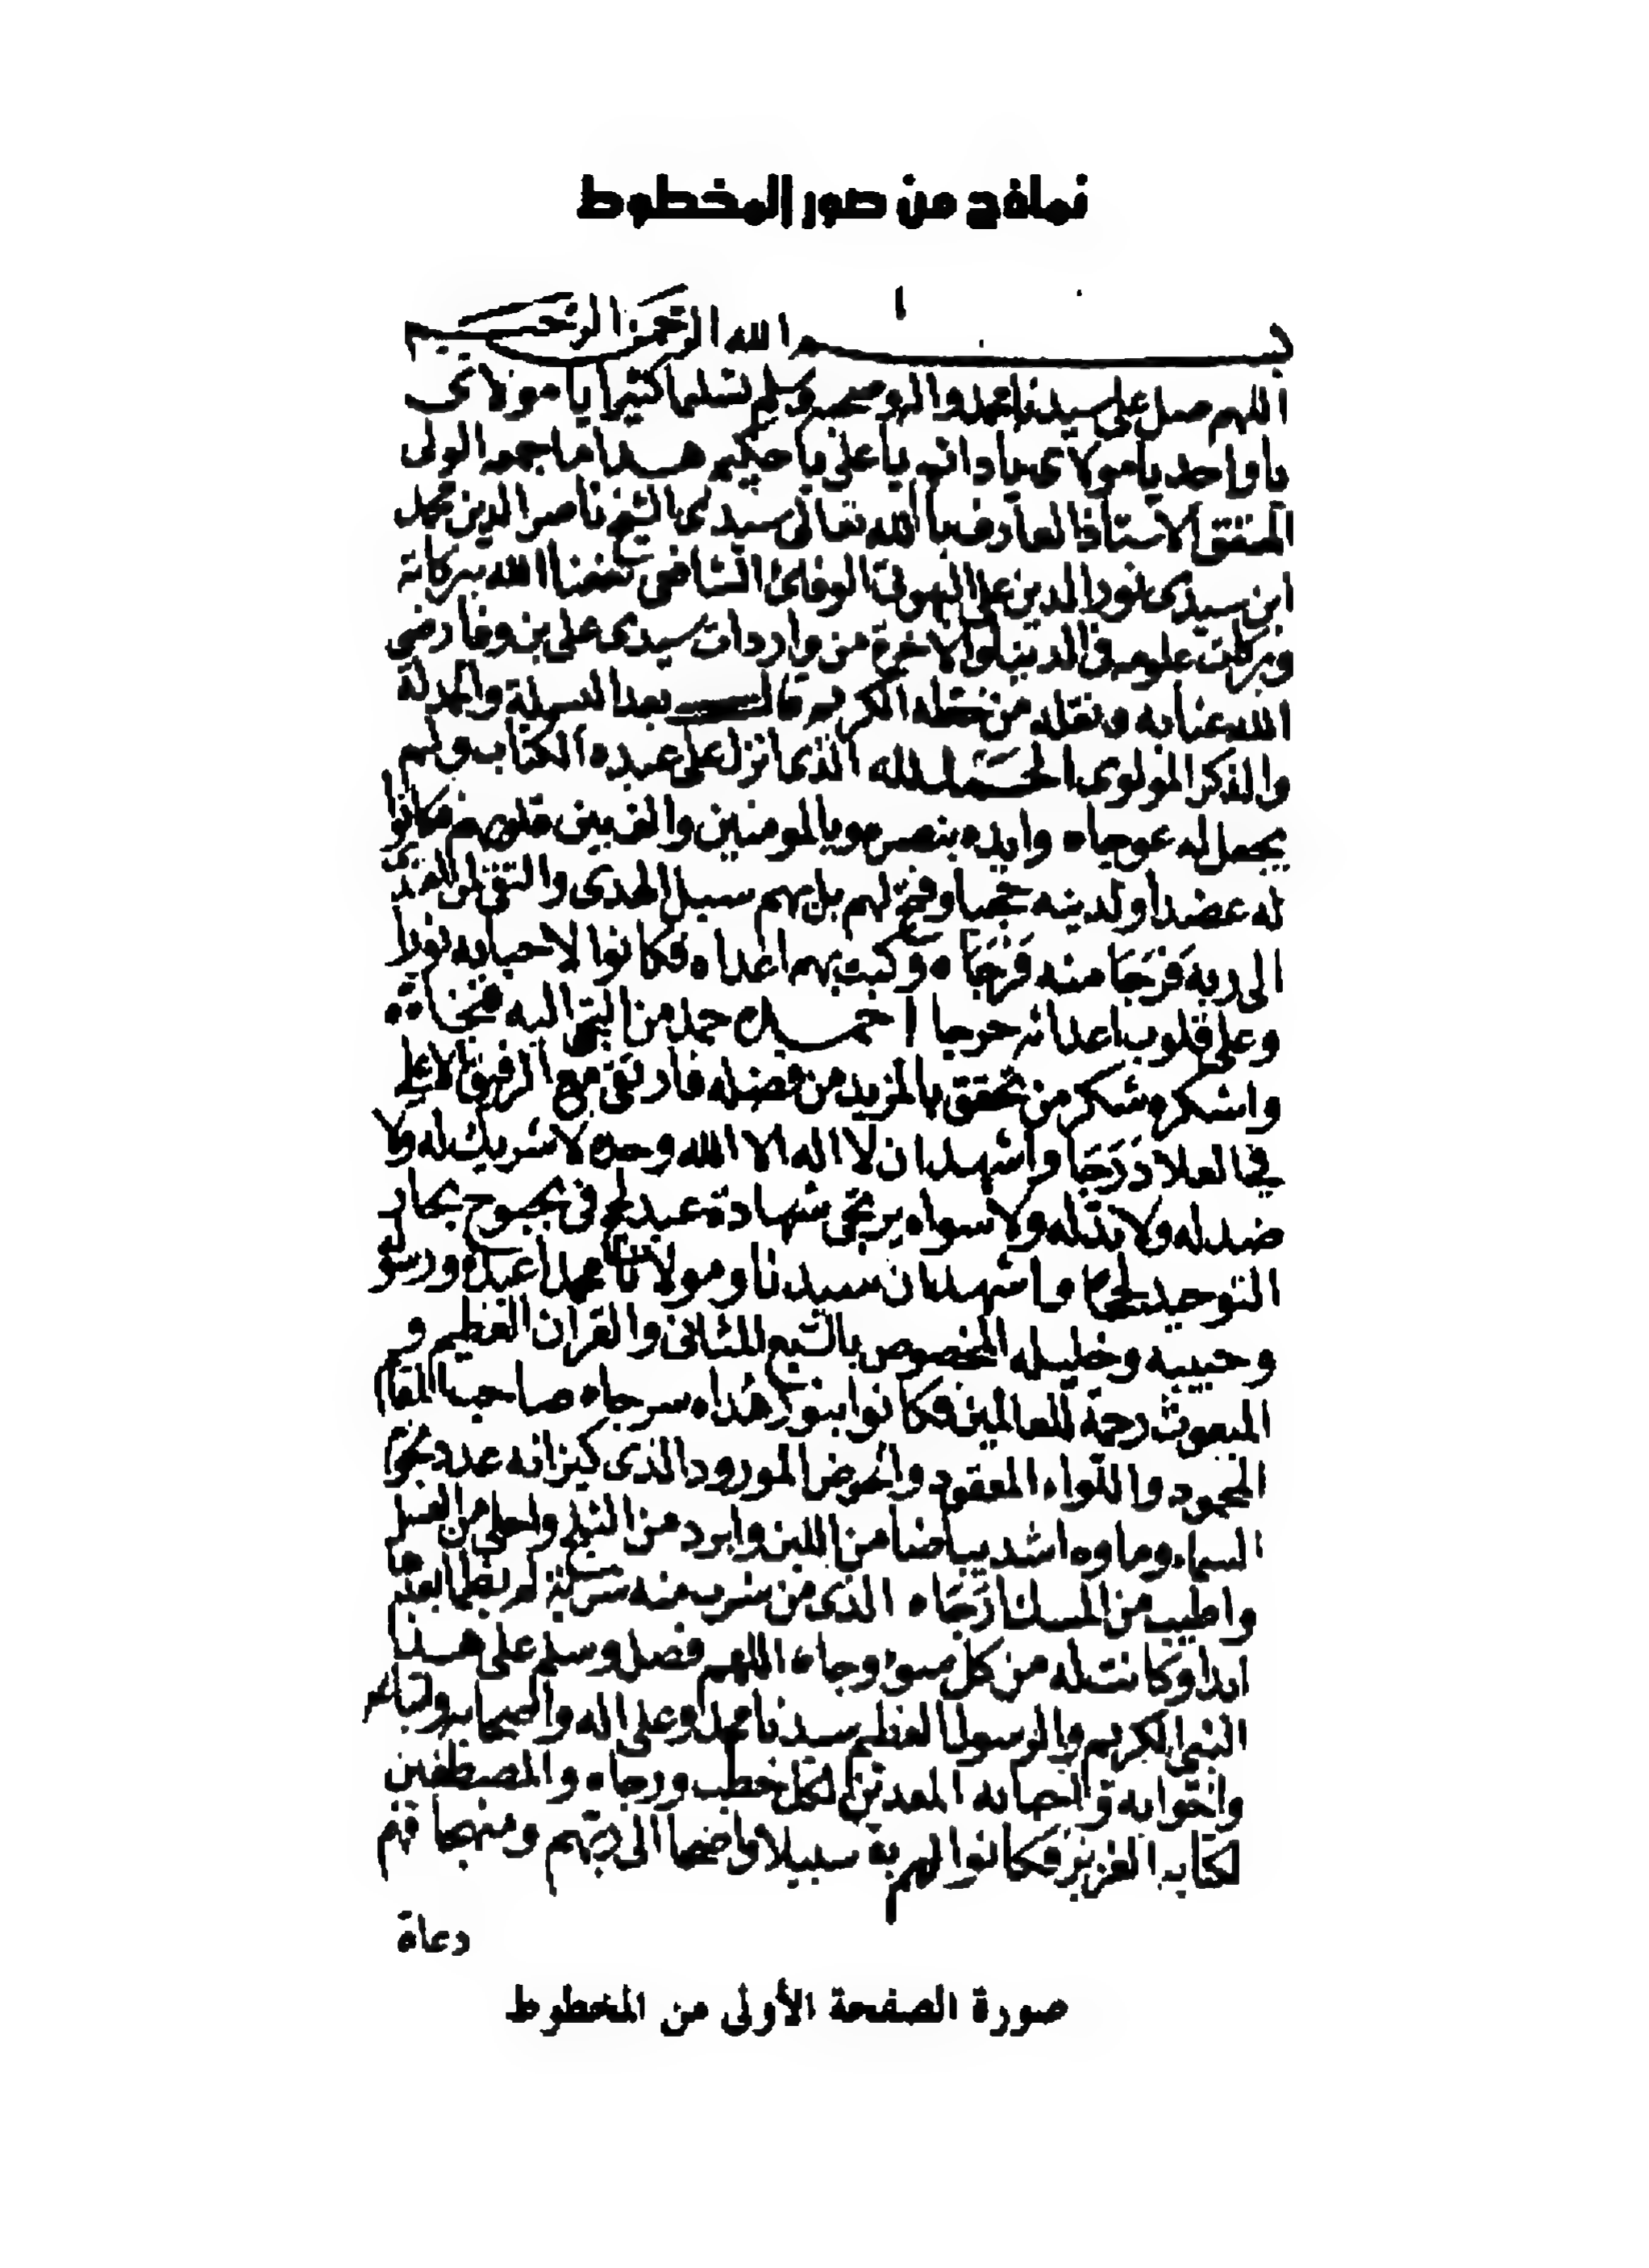 نماذج من صور المخطوط
بسم الله الرحمن الرحيم
اللهم صل على سيدنا محمد واله وصحبه وسلم تسليما كثيرا يا مولاى
يا واحد يا مولاى يا دائم يا على يا حكيم هذا ما جمعه الولى
الاستاذ العارف بالله تعالى سيدى الشيخ ناصر الدين محمد
ابن سيدى نور الدين على الوفائى الشافعى نفعنا الله ببركاته
وبركات علومه فى الدنيا والاخرة من واردات سيدى على بن وفا رضى
الله عنا به ونقله من خطه الكريم قال بعد البسملة والحمدلة
والذكر المولوى الحمد لله الذى انزل على عبده الكتاب ولم
يجعل له عوجا وايده بنصره وبالمومنين والف بين قلوبهم فكانوا
له عضدا ولدينه حججا وفتح لهم بل بهم سبل الهدى والتقى لمن
الى ربه فرجا منه فرجا وكبت بهم اعداه فكانوا لاحبابه نورا
وعلى قلوب اعدائه حرجا احمده حمد من التجا اليه
واشكره شكر من تحقق بالمزيد من فضله فارتقى مع الرفيق الاعلى
فى العلا درجا واشهد ان لا اله الا الله وحده لا شريك له ولا
ضد له ولا ند له ولا سواه يرتجى شهادة عبد لج فى بحبوح بحار
التوحيد لججا واشهد ان سيدنا ومولانا محمدا عبده ورسوله
وحبيبه وخليله المخصوص بالسبع المثانى والقران العظيم و
المبعوث رحمة للعالمين فكانوا بنور هداه سرجا صاحب المقام
المحمود واللواء المعقود والحوض المورود الذى كيزانه عدد نجوم
السماء وماوه اشد بياضا من اللبن وابرد من الثلج واحلى من العسل
واطيب من المسك ارجا الذى من شرب منه شربة لم يظما بعدها
ابدا وكانت له من كل سوء وجاء اللهم فصل وسلم على هذا
النبى الكريم والرسول العظيم سيدنا محمد وعلى اله واصحابه
واخوانه واحبابه المعدين لكل خطب ورجاء والمصطفين
لكتابه العزيز فكانوا لهم به سبيلا واضحا الى ربهم ومنهجا فهم
دعاة
صورة الصفحة الأولى من المخطوط